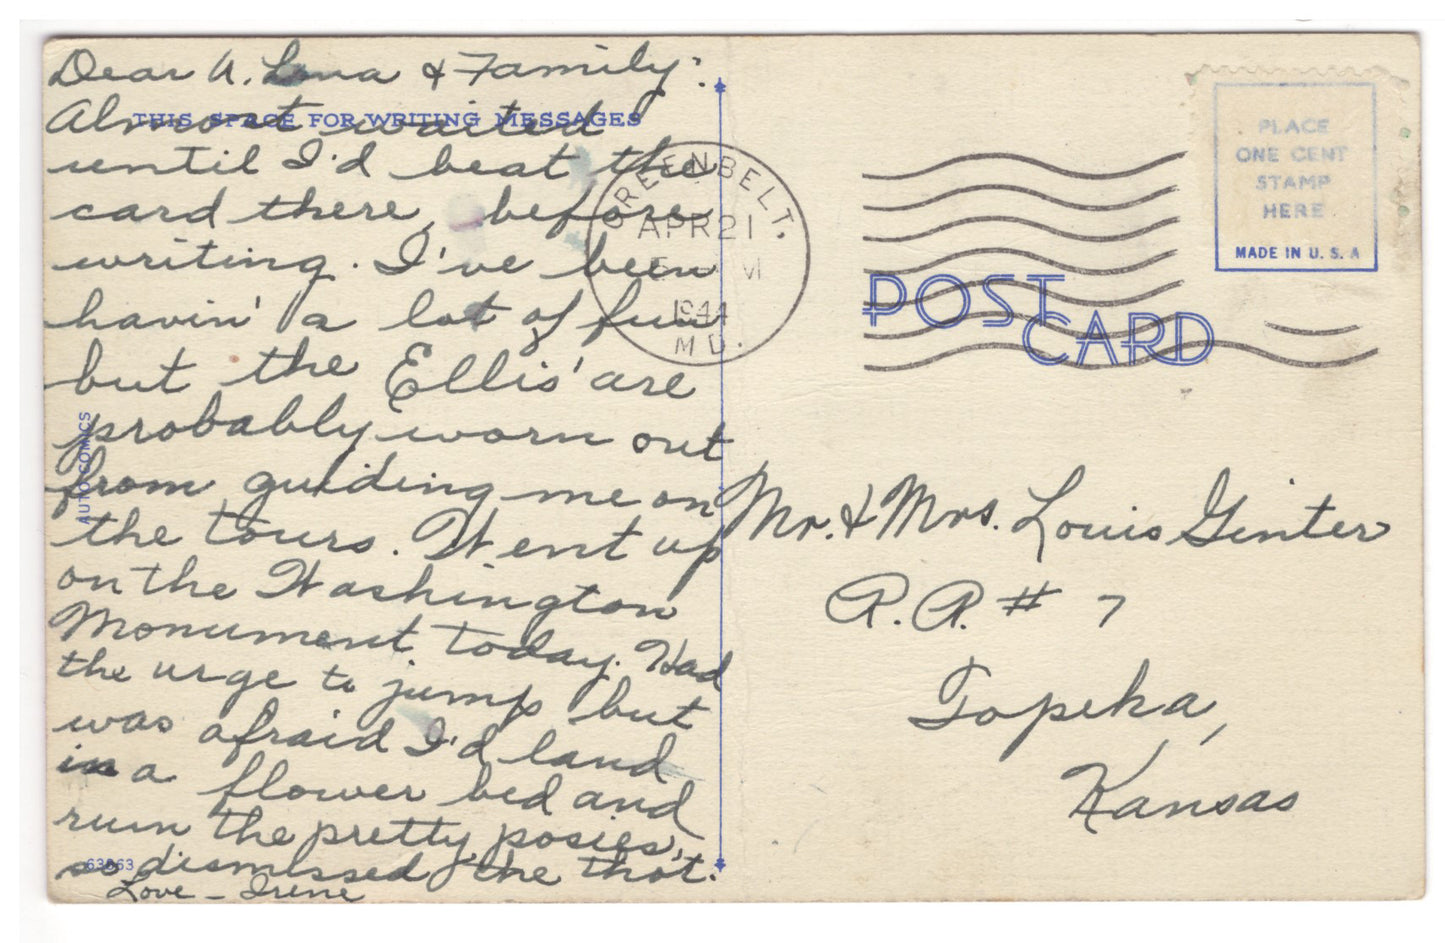 Dear A. Lena & Family:
THIS SPACE FOR WRITING MESSAGES
Almost waited
until I'd beat the
card there, before
writing. I've been
havin' a lot of fun
but the Ellis' are
probably worn out
from guiding me on
the tours. Went up
on the Washington
Monument today. Had
the urge to jump but
was afraid I'd land
in a flower bed and
ruin the pretty posies,
so dismissed the thot.
Love - Irene
AUTO COMICS
63863
GREENBELT,
APR 21
M
1944
MD.
PLACE
ONE CENT
STAMP
HERE
MADE IN U.S.A
POST
CARD
Mr. & Mrs. Louis Ginter
R.R. # 7
Topeka,
Kansas